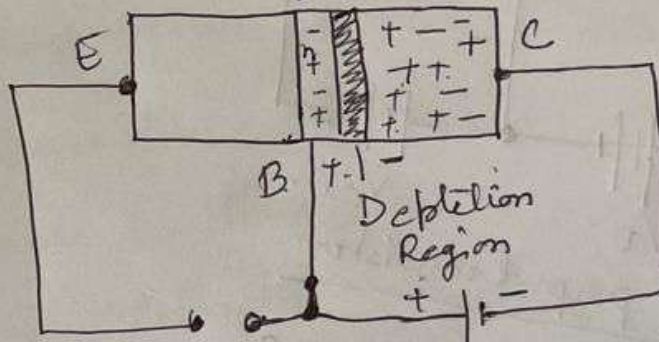 E
- n + - +
+ - - +
- + +
+ -
+ + -
C
B
+ | -
Depletion
Region
+ -